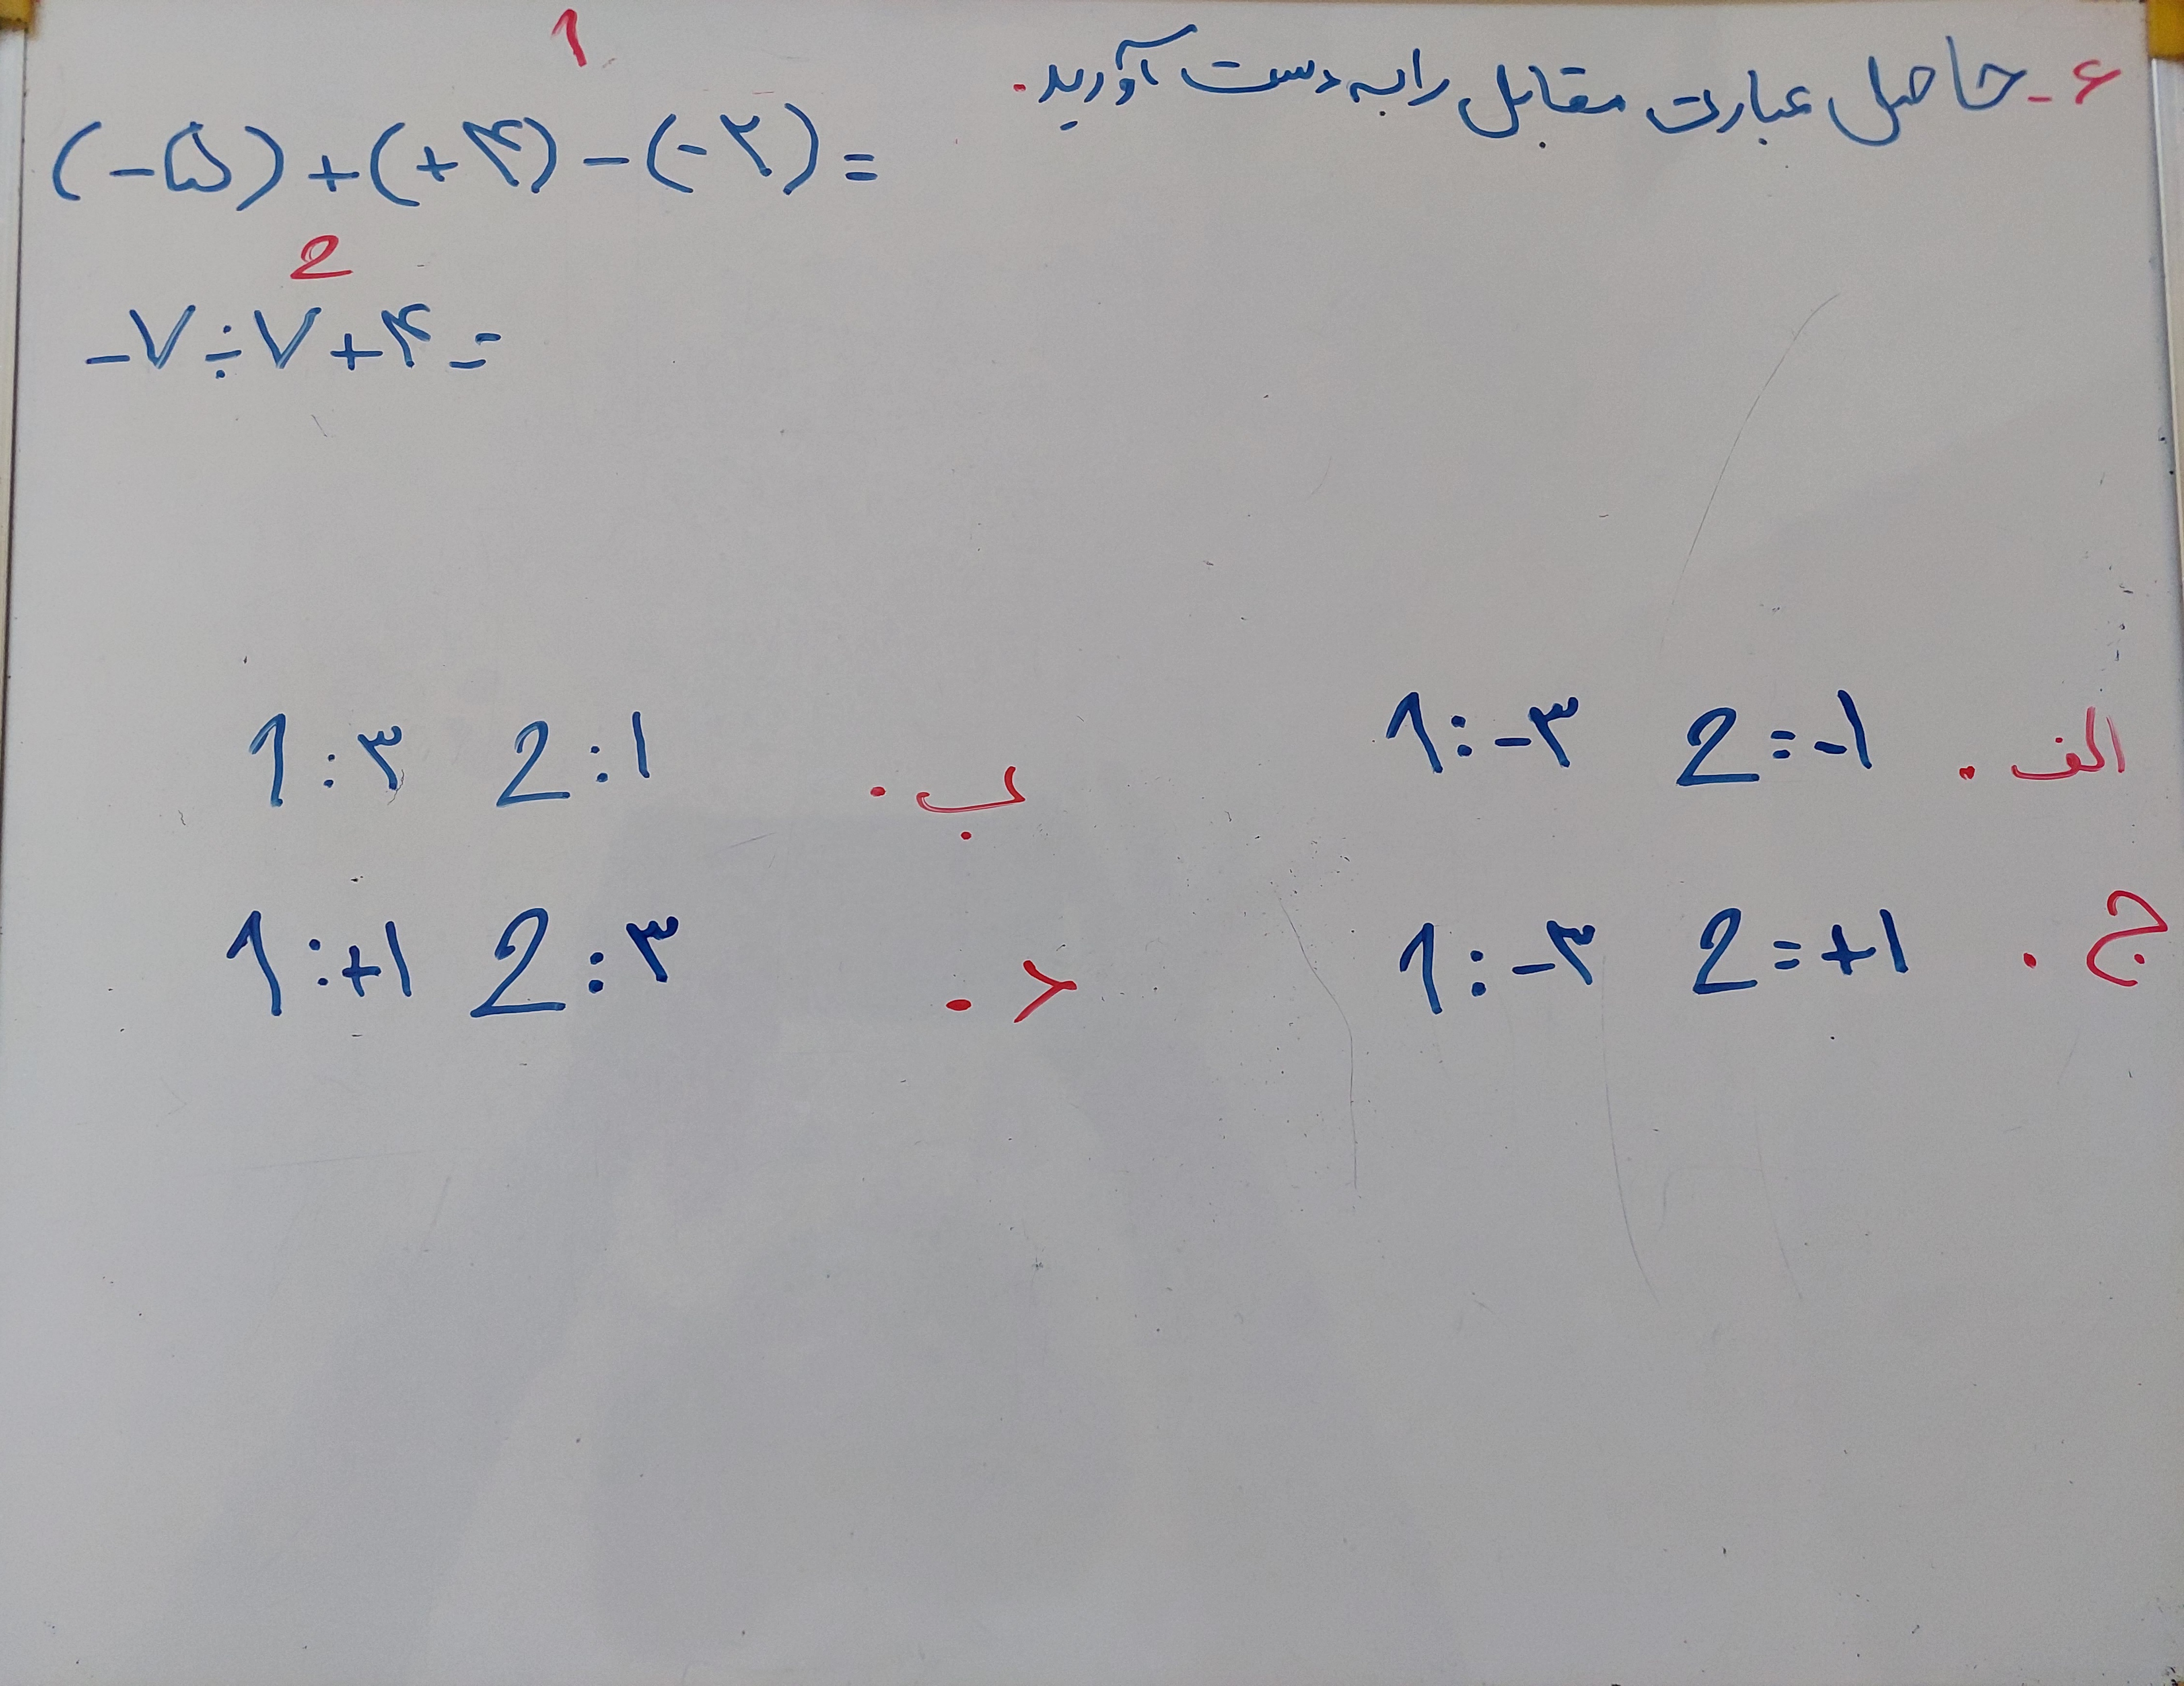 ۶- حاصل عبارت مقابل را به دست آورید.
1
(-۵) + (+۴) - (-۲) =
2
-۷ ÷ ۷ + ۴ =
الف. 1: -۳ 2 = -۱
ب. 1: ۳ 2: ۱
ج. 1: -۳ 2 = +۱
د. 1: +۱ 2: ۳